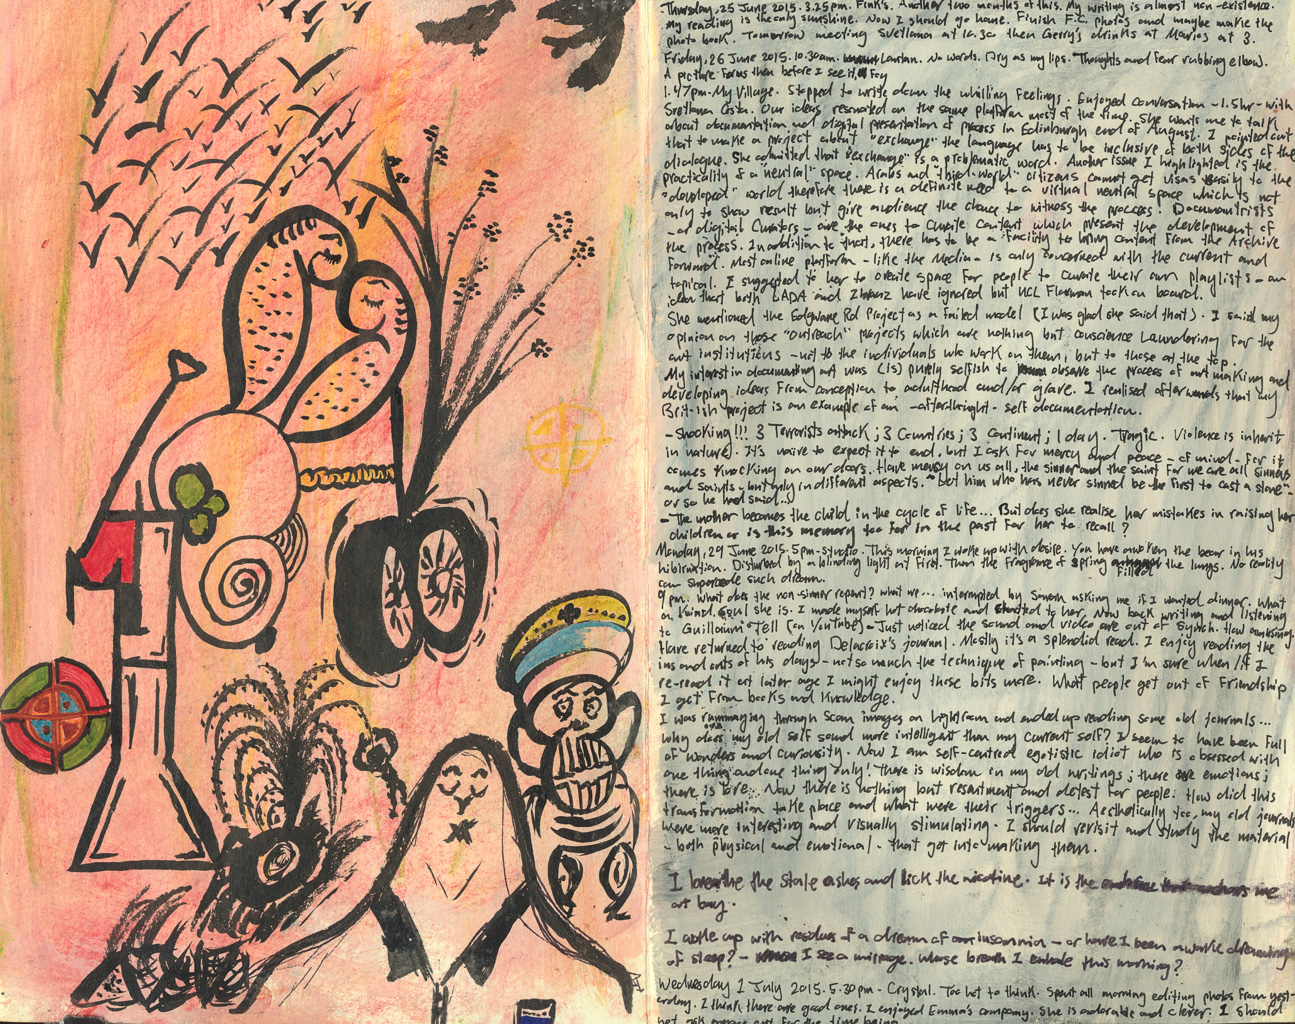 Thursday, 25 June 2015. 3.25pm. Fink's. Another two months of this. My writing is almost non-existence.
My reading is the only sunshine. Now I should go home. Finish F.C. photos and maybe make the
photo book. Tomorrow meeting Svetlana at 10.30 then Gerry's drinks at Maria's at 3.
Friday, 26 June 2015. 10.30am. No words. Dry as my lips. Thoughts and fear rubbing elbow.
A picture forms then before I see it,
1.47pm - My Village. Stopped to write down the whilling feelings. Enjoyed conversation - 1.5hr - with
Svetlana Our ideas resonated on the same platform most of the time. She wants me to talk
about documentation and digital presentation of process in Edinburgh end of August. I pointed out
that to make a project about "exchange" the language has to be inclusive of both sides of the
dialogue. She admitted that "exchange" is a problematic word. Another issue I highlighted is the
practicality of a "neutral" space. Arabs and "third-world" citizens cannot get visas easily to the
"developed" world therefore there is a definite need to a virtual neutral space which is not
only to show result but give audience the chance to witness the process. Documentrists
- or digital curators - are the ones to curate content which present the development of
the process. In addition to that, there has to be a facility to bring content from the Archive
forward. Most online platform - like the Media - is only concerned with the current and
topical. I suggested to her to create space for people to curate their own playlists - an
idea that both LADA and have ignored but UCL took on board.
She mentioned the Edgware Rd Project as a failed model (I was glad she said that). I said my
opinion on those "outreach" projects which are nothing but conscience laundering for the
art institutions - not to the individuals who work on them, but to those at the top.
My interest in documenting art was (is) purely selfish to observe the process of art making and
developing ideas from conception to adulthood and/or grave. I realised afterwards that my
Brit-ish project is an example of an -afterthought- self documentation.
- Shocking!!! 3 Terrorists attack; 3 Countries; 3 Continent; 1 day. Tragic. Violence is inherit
in nature. It's naive to expect it to end, but I ask for mercy and peace - of mind - for it
comes knocking on our doors. Have mercy on us all, the sinner and the saint for we are all sinners
and saints - but only in different aspects. "Let him who has never sinned be the first to cast a stone" -
or so he had said...
- The mother becomes the child in the cycle of life... But does she realise her mistakes in raising her
children or is this memory too far in the past for her to recall?
Monday, 29 June 2015. 5pm - studio. This morning I woke up with desire. You have awoken the bear in his
hibirnation. Disturbed by a blinding light at first. Then the fragrance of spring filled the lungs. No reality
can supercede such dream.
9pm. What does the non-sinner repent? What we... interrupted by asking me if I wanted dinner. What
a kind soul she is. I made myself hot chocolate and to her. Now back writing and listening
to Guillaum Tell (on YouTube) - Just noticed the sound and video are out of synch. How amusing.
Have returned to reading Delacroix's journal. Mostly it's a splendid read. I enjoy reading the
ins and outs of his days - not so much the technique of painting - but I'm sure when/if I
re-read it at later age I might enjoy those bits more. What people get out of friendship
I get from books and knowledge.
I was rummaging through scan images on Lightroom and ended up reading some old journals...
why does my old self sound more intelligent than my current self? I seem to have been full
of wonders and curiosity. Now I am self-centred egotistic idiot who is obsessed with
one thing and one thing only! There is wisdom in my old writings; there are emotions;
there is love. Now there is nothing but resentment and detest for people. How did this
transformation take place and what were their triggers... Aesthetically too, my old journals
were more interesting and visually stimulating. I should revisit and study the material
- both physical and emotional - that got into making them.
I breathe the stale ashes and lick the nicotine. It is the me
at bay.
I woke up with residues of a dream of insomnia - or have I been awake dreaming
of sleep? - I see a mirage. Whose breath I exhale this morning?
Wednesday 1 July 2015. 5.30pm - Crystal. Too hot to think. Spent all morning editing photos from yest-
erday. I think there are good ones. I enjoyed Emma's company. She is adorable and clever. I should
for the time being.